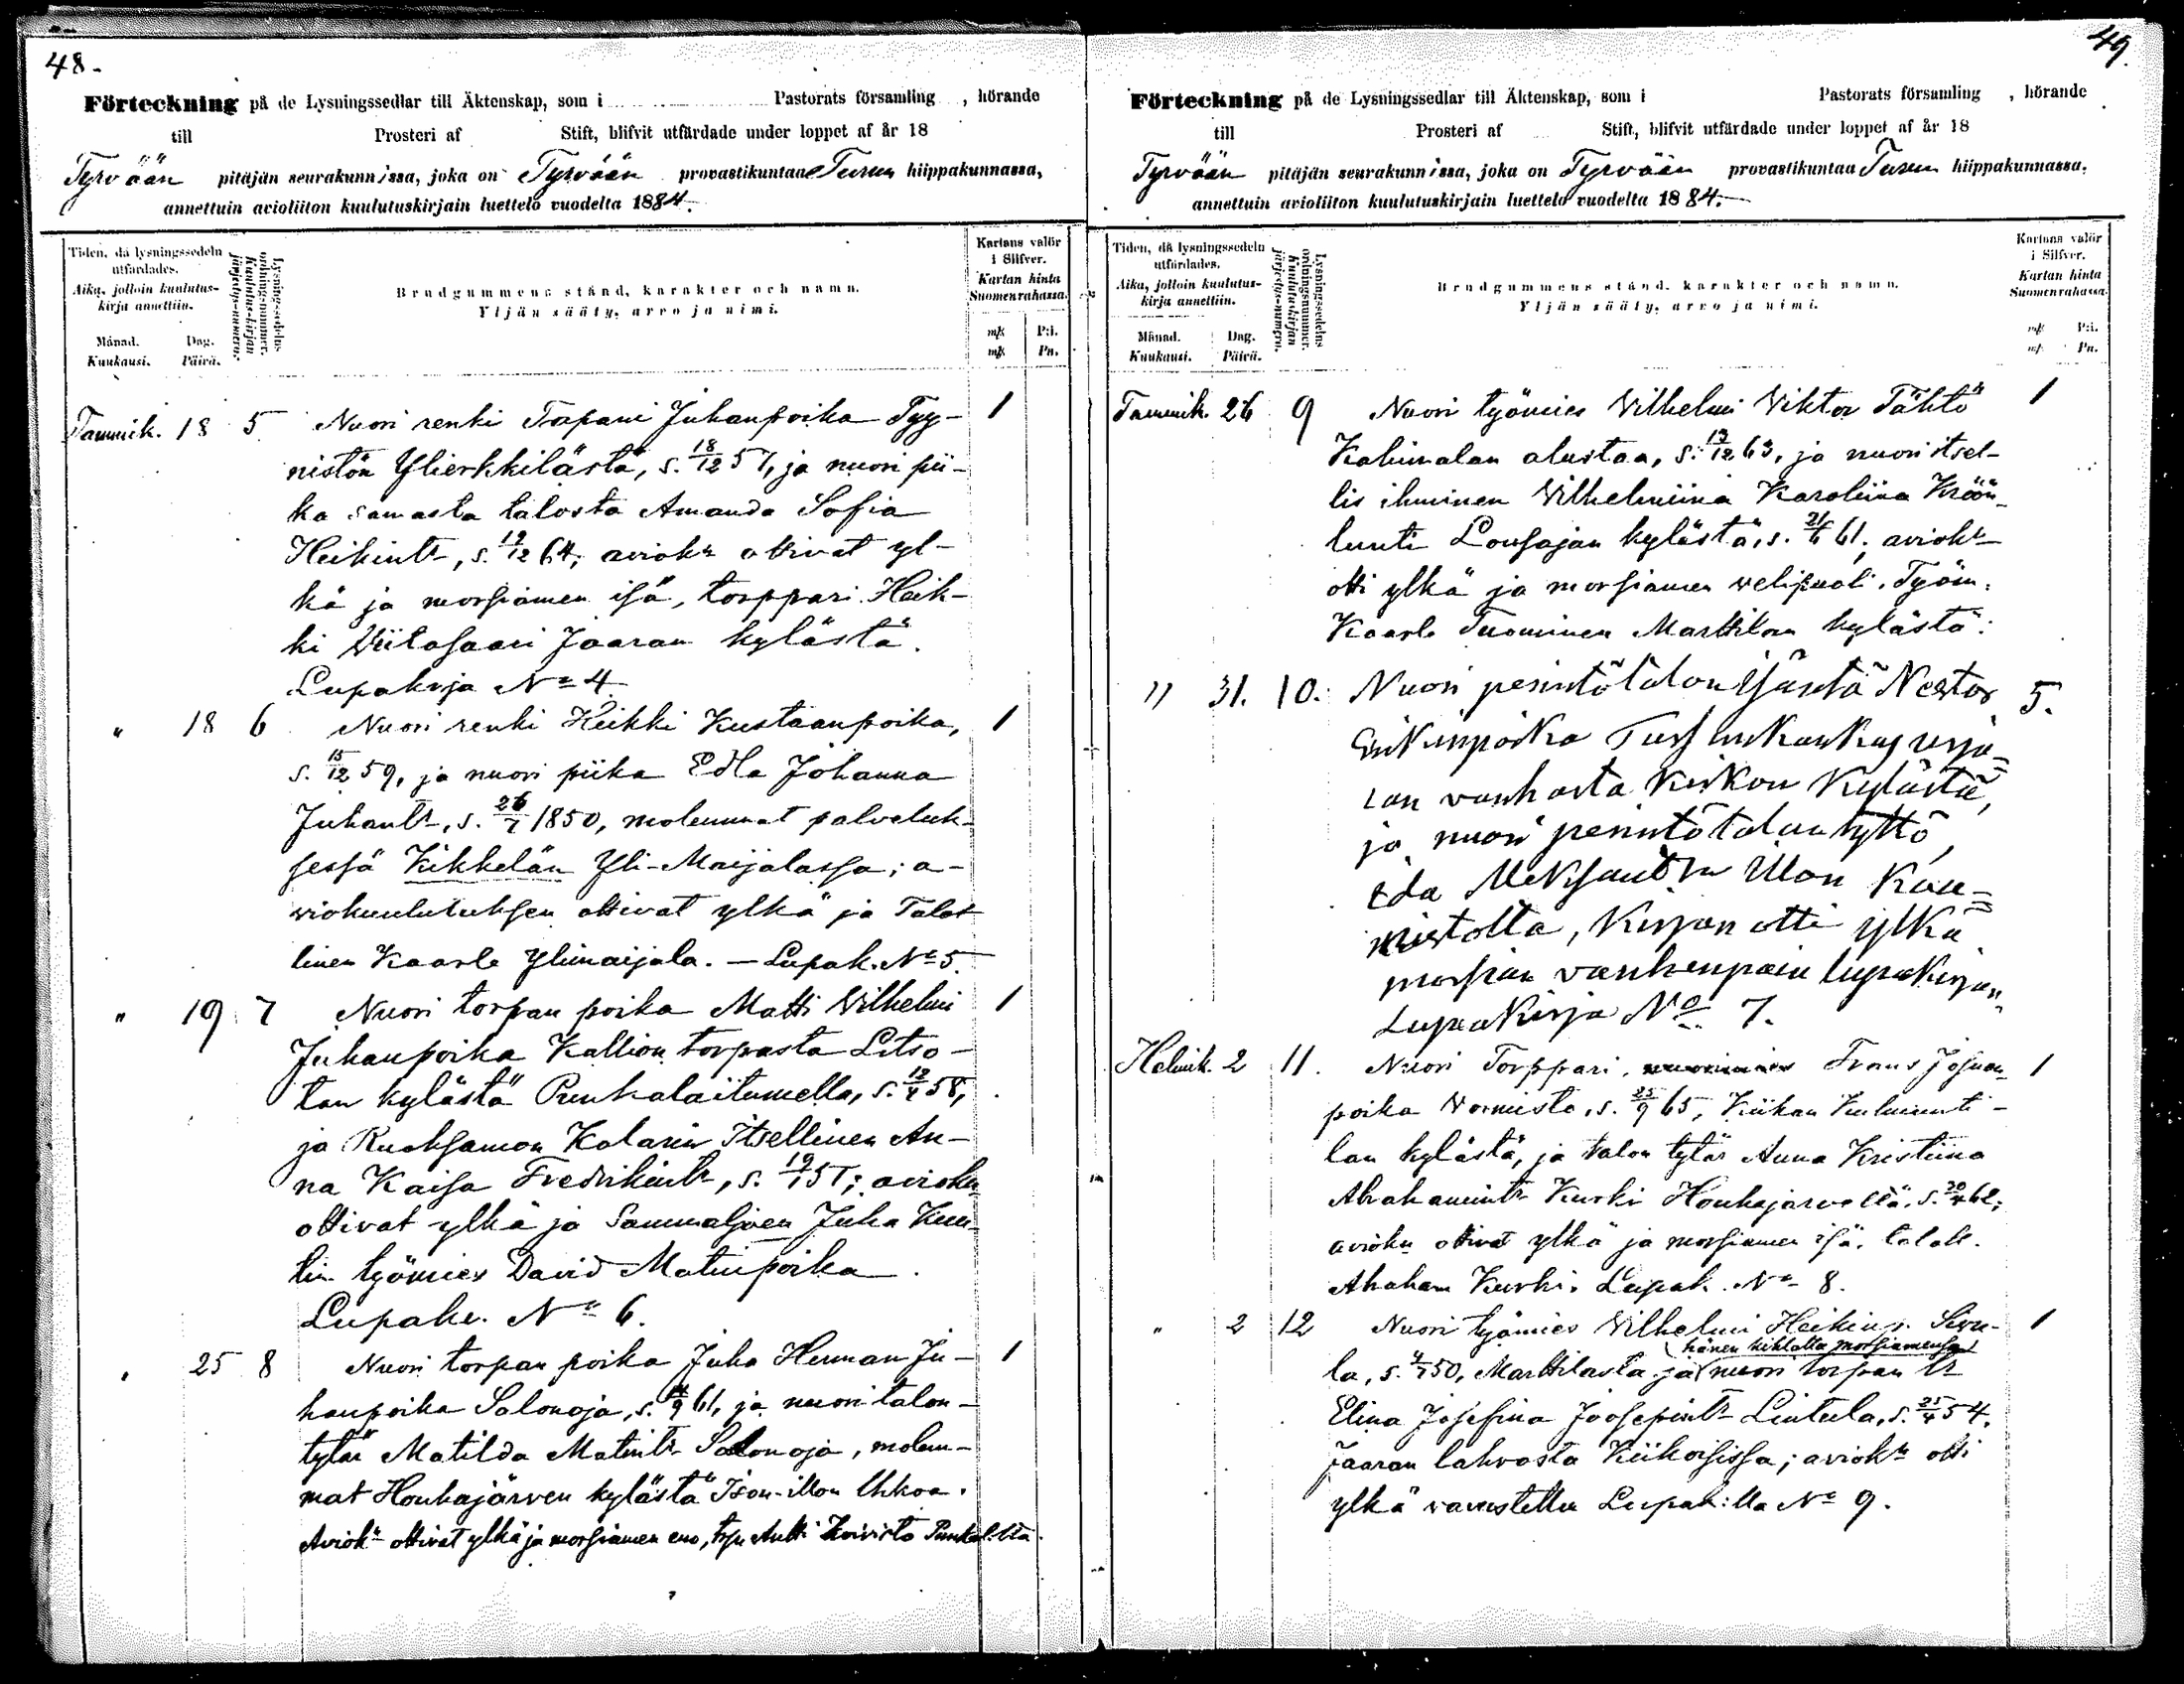 48.
Förteckning på de Lysningssedlar till Äktenskap, som i Pastorats församling , hörande
till Prosteri af Stift, blifvit utfärdade under loppet af år 18
Tyrvään pitäjän seurakunnissa, joka on Tyrvään provastikuntaa Turun hiippakunnassa,
annettuin avioliiton kuulutuskirjain luettelo vuodelta 1884.
Tiden, då lysningssedeln
utfärdades.
Aika, jolloin kuulutus-
kirja annettiin.
Månad. Dag.
Kuukausi. Päivä.
Lysningssedelns
ordningsnummer.
Kuulutus-kirjan
järjestys-numero.
Brudgummens stånd, karakter och namn.
Yljän sääty, arvo ja nimi.
Kartans valör
i Silfver.
Kartan hinta
Suomenrahassa.
mk P:i.
mk Pn.
Tammik. 18 5 Nuori renki Tapani Juhanpoika Tyy- 1
nistön Ylierkkilästä, s. 18/12 57, ja nuori pii-
ka samasta talosta Amanda Sofia
Heikintr, s. 19/12 64; aviokr ottivat yl-
kä ja morsiamen isä, torppari Heik-
ki Wiitasaari Jaaran kylästä.
Lupakirja No 4
" 18 6 Nuori renki Heikki Kustaanpoika, 1
s. 15/12 59, ja nuori piika Edla Johanna
Juhantr, s. 26/7 1850, molemmat palveluk-
sessa Kikkelän Yli-Maijalassa; a-
viokuulutuksen ottivat ylkä ja Talol
linen Kaarle Ylimaijala. - Lupak. No 5.
" 19 7 Nuori torpan poika Matti Wilhelmi 1
Juhanpoika Kallion torpasta Litso-
lan kylästä Punkalaitumella, s. 12/4 58,
ja Ruoksamon Kalarin Itsellinen An-
na Kaisa Fredrikintr, s. 19/1 57; avioku
ottivat ylkä ja Sammaljoen Juha Kuu-
tin työmies David Matinpoika.
Lupakr. No 6.
" 25 8 Nuori torpan poika Juha Herman Ju- 1
hanpoika Salonoja, s. /9 61, ja nuori talon-
tytär Matilda Matintr Salonoja, molem-
mat Houhajärven kylästä Ison-illon Uhkoa.
Aviokr ottivat ylkä ja morsiamen eno, trp Antti Koivisto Punkal:lta.
49.
Förteckning på de Lysningssedlar till Äktenskap, som i Pastorats församling , hörande
till Prosteri af Stift, blifvit utfärdade under loppet af år 18
Tyrvään pitäjän seurakunnissa, joka on Tyrvään provastikuntaa Turun hiippakunnassa,
annettuin avioliiton kuulutuskirjain luettelo vuodelta 1884.
Tiden, då lysningssedeln
utfärdades.
Aika, jolloin kuulutus-
kirja annettiin.
Månad. Dag.
Kuukausi. Päivä.
Lysningssedelns
ordningsnummer.
Kuulutus-kirjan
järjestys-numero.
Brudgummens stånd, karakter och namn.
Yljän sääty, arvo ja nimi.
Kartans valör
i Silfver.
Kartan hinta
Suomenrahassa.
mk P:i.
mk Pn.
Tammik. 26 9 Nuori työmies Wilhelmi Viktor Tähtö 1
Kaliualan alustaa, s. 13/12 63, ja nuori itsel-
lis ihminen Wilhelmiina Karoliina Kröön-
luuti Lousajan kylästä, s. 21/6 61; aviokr
otti ylkä ja morsiamen velipuoli. Työm.
Kaarle Tuominen Marttilan kylästä:
" 31. 10. Nuori perintötalon Isäntä Nestor 5.
Erikinpoika
lan vanhasta Kiskon Kylästä,
ja nuori perintötalon tyttö,
Eda Aleksandra Illon Kau-
nistolta, Kirjan otti ylkä
morsian vanhenpain lupakirjan
Lupakirja No 7.
Helmik. 2 11. Nuori Torppari, Frans Josuan 1
poika Wornisto, s. 25/9 65, Kiikan Kulmunti-
lan kylästä, ja talon tytär Anna Kristiina
Abrahamintr Kurki Houhajarvellä. s. 30/4 62;
avioku ottivat ylkä ja morsiamen isä, taloll.
Abraham Kurki. Lupak. No 8.
" 2 12 Nuori työmies Wilhelmi Heikinp. Sivu- 1
hänen kihlattu morsiamensa
la, s. 4/7 50, Marttilasta ja nuori torpan tr
Elina Josefina Joosepintr Lintula, s. 25/4 54.
Jaaran lahvosta Kiikoisissa; aviokr otti
ylkä varustettu Lupak:lla No 9.